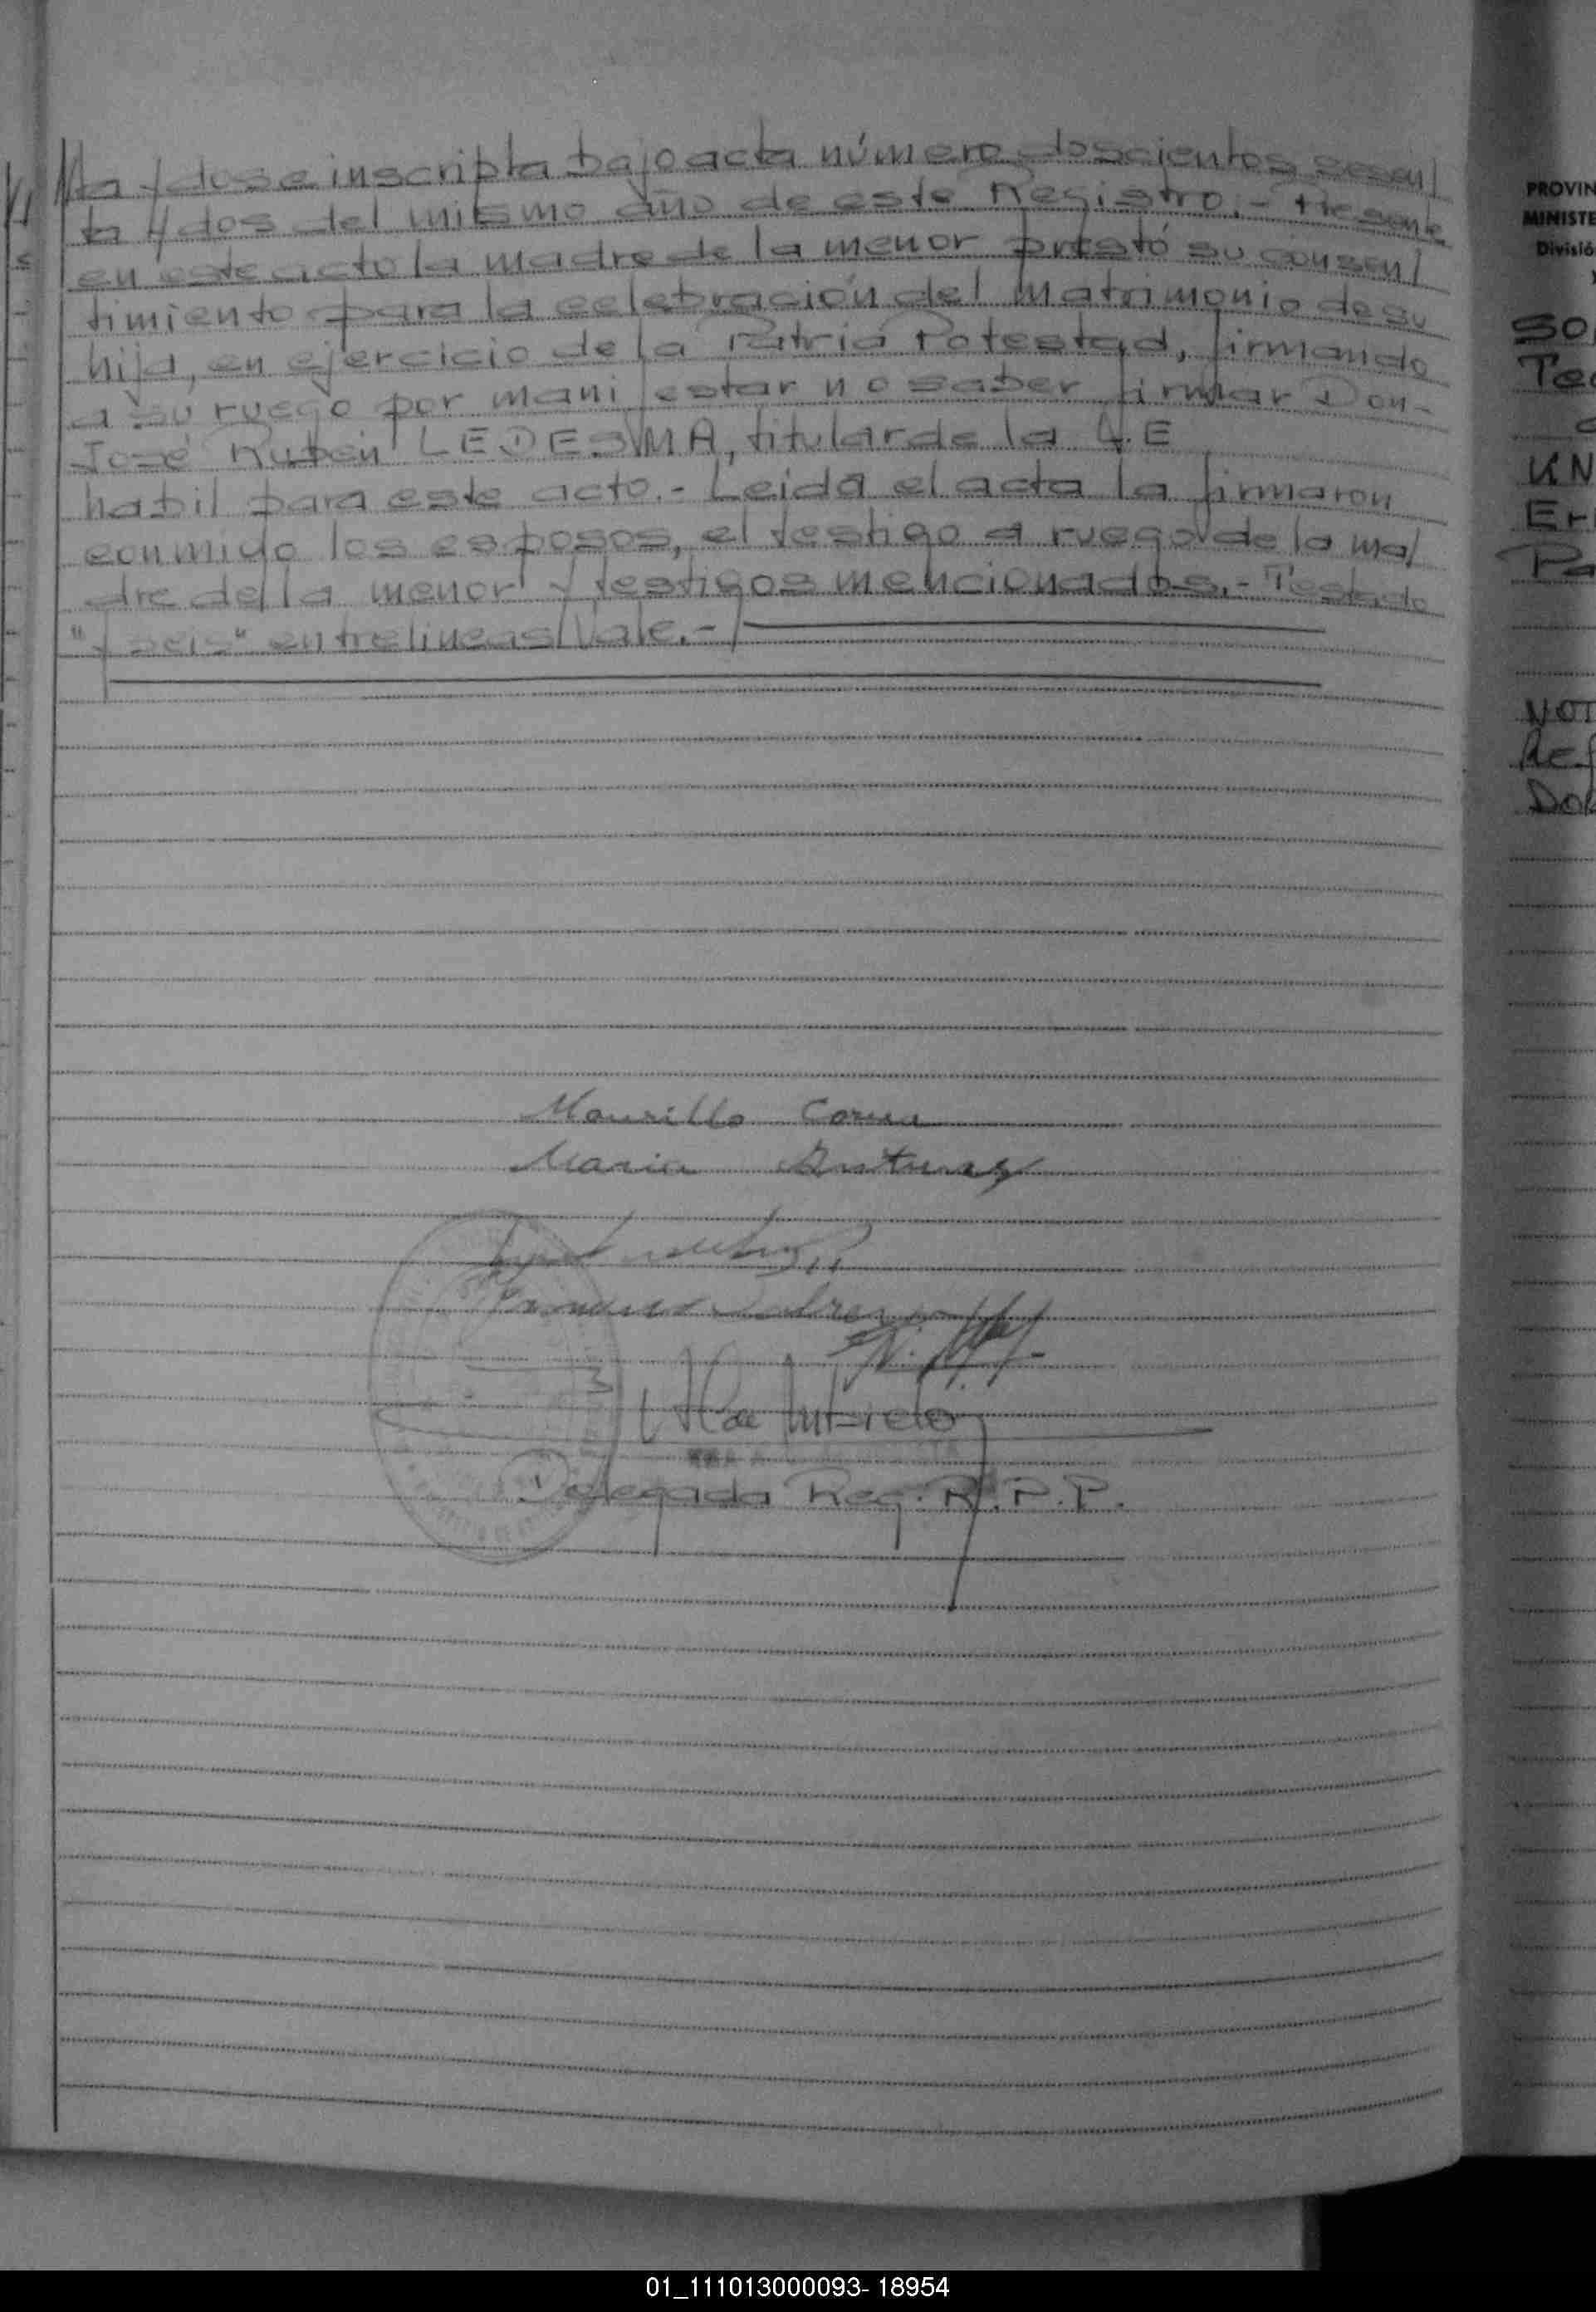 ta y dos e inscripta bajo acta número doscientos sesen/
ta y dos del mismo año de este Registro.- Presente
en este acto la madre de la menor prestó su consen/
timiento para la celebración del matrimonio de su
hija, en ejercicio de la Patria Potestad, firmando
a su ruego por manifestar no saber firmar Don-
José Rubén LEDESMA, titular de la L.E
habil para este acto.- Leida el acta la firmaron
conmigo los esposos, el testigo a ruego de la ma/
dre de la menor y testigos mencionados.- Testado
"y seis" entrelineas Vale.-
Maurillo
Maria Antunez
Delegada Reg. R.P.P.
PROVIN
MINISTE
Divisió
SO
Te
KN
Er
Pa
NOT
Ref
Dol
01_111013000093- 18954